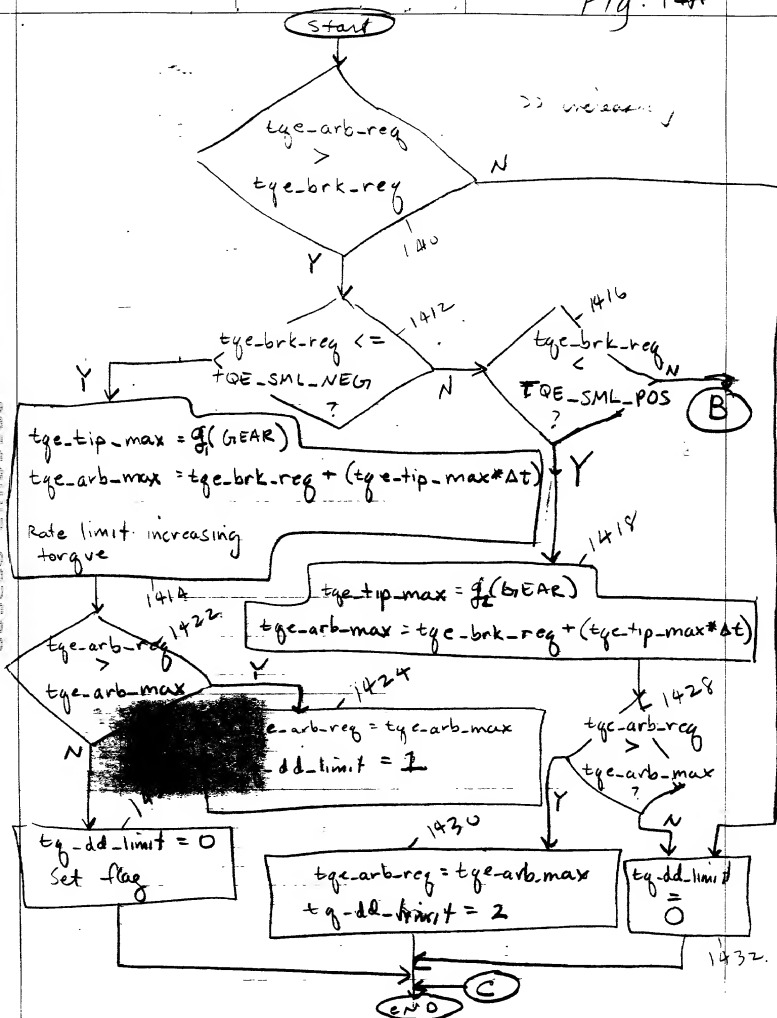 Fig. 14A
Start
tqe_arb_req
>
tqe_brk_req
N
Y
1410
1412
tqe_brk_req <=
TQE_SML_NEG
?
Y
N
1416
tqe_brk_req
<
TQE_SML_POS
?
N
B
Y
tqe_tip_max = g1(GEAR)
tqe_arb_max = tqe_brk_req + (tqe_tip_max*Δt)
Rate limit increasing
torque
1414
1418
tqe_tip_max = g2(GEAR)
tqe_arb_max = tqe_brk_req + (tqe_tip_max*Δt)
1422
tqe_arb_req
>
tqe_arb_max
Y
N
1424
e_arb_req = tqe_arb_max
dd_limit = 1
1428
tqe_arb_req
>
tqe_arb_max
?
Y
N
tq_dd_limit = 0
Set flag
1430
tqe_arb_req = tqe_arb_max
tq_dd_limit = 2
tq_dd_limit
=
0
1432
C
END